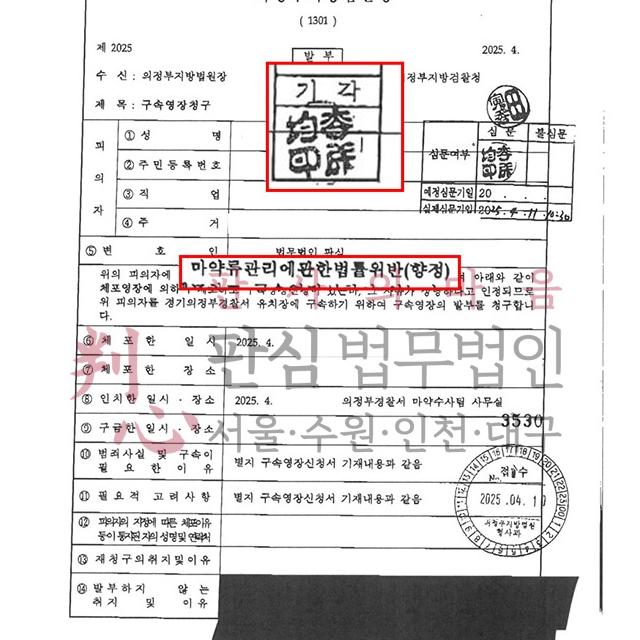 ( 1301 )
제 2025
발 부
2025. 4.
수 신 : 의정부지방법원장
정부지방검찰청
제 목 : 구속영장청구
기 각
심 문
불심문
심문여부
예정심문기일 20 . . .
실제심문기일 2025. 4. 11. 10:30
피 의 자
① 성 명
② 주 민 등 록 번 호
③ 직 업
④ 주 거
⑤ 변 호 인
법무법인 판심
마약류관리에관한법률위반(향정)
위의 피의자에
여 아래와 같이
체포영장에 의하
고 인정되므로
위 피의자를 경기의정부경찰서 유치장에 구속하기 위하여 구속영장의 발부를 청구합니
다.
판사의 마음
⑥ 체 포 한 일 시
2025. 4.
⑦ 체 포 한 장 소
判心
판심 법무법인
서울·수원·인천·대구
⑧ 인치한 일시 · 장소
2025. 4.
의정부경찰서 마약수사팀 사무실
3530
⑨ 구금한 일시 · 장소
⑩ 범죄사실 및 구속이 필 요 한 이 유
별지 구속영장신청서 기재내용과 같음
⑪ 필 요 적 고 려 사 항
별지 구속영장신청서 기재내용과 같음
접 수
No.
2025. 04. 10
의정부지방법원
형사과
⑫ 피의자의 지정에 따른 체포이유
등이 통지된 자의 성명 및 연락처
⑬ 재 청 구 의 취 지 및 이 유
⑭ 발 부 하 지 않 는
취 지 및 이 유